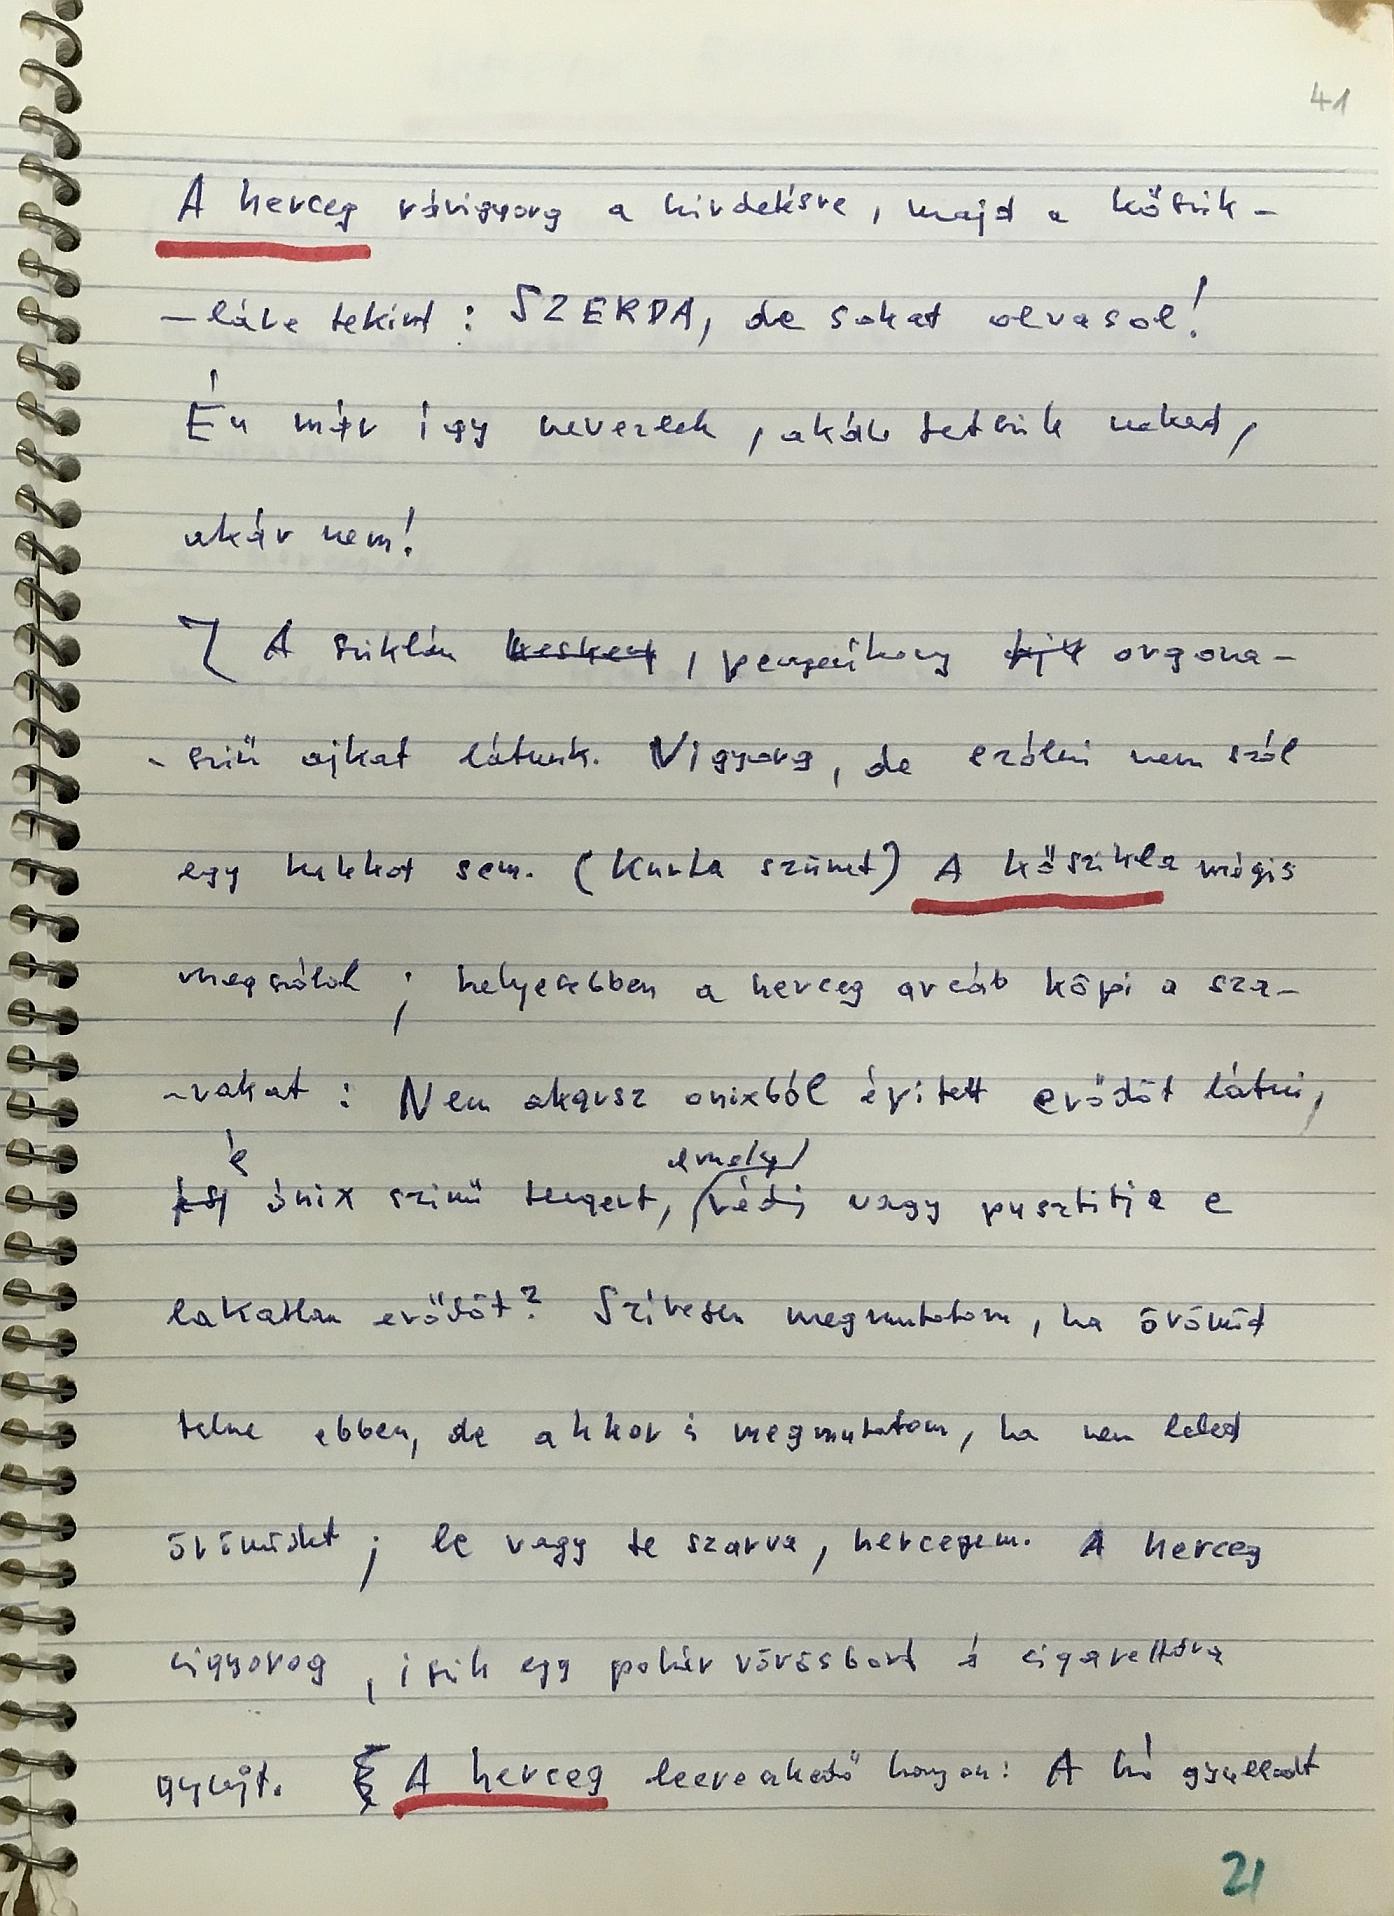 41
A herceg rávigyorg a hirdetésre, majd a kőszik-
-lára tekint: SZERDA, de sokat olvasol!
Én már így nevezlek, akár tetszik neked,
akár nem!
A sziklán keskeny, pengevékony orgona-
-szinű ajkat látunk. Vigyorg, de ezóttal nem szól
egy kukkot sem. (Kurta szünet) A kőszikla mégis
megszólal; helyesebben a herceg arcáb köpi a sza-
-vakat: Nem akarsz onixból épitett erődöt látni,
és é ónix szinű tengert, amely védi vagy pusztitja e
lakatlan erődöt? Szívesen megmutatom, ha örömöd
telne ebben, de akkor is megmutatom, ha nem leled
örömödet; le vagy te szarva, hercegem. A herceg
vigyorog, iszik egy pohár vörösbort és cigarettára
gyújt. A herceg hangon: A hó gyulladt
21